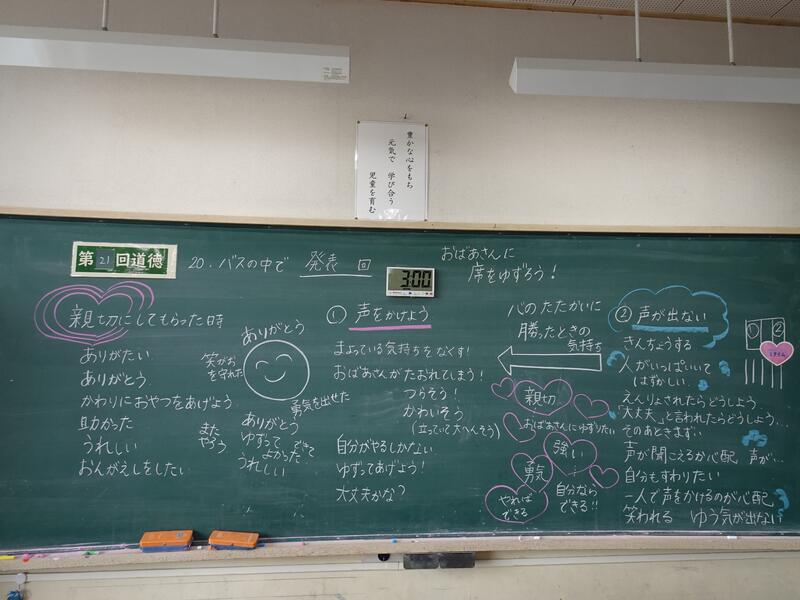 豊かな心をもち
元気で 学び合う
児童を育む
第21回道徳
20. バスの中で 発表 回
3:00
おばあさんに
席をゆずろう!
親切にしてもらった時
ありがたい
ありがとう
かわりにおやつをあげよう
助かった
うれしい
おんがえしをしたい
また
やろう
ありがとう
笑がお
を守れた
勇気を出せた
ありがとう
ゆずって できて
よかった
うれしい
① 声をかけよう
まよっている気持ちをなくす!
おばあさんがたおれてしまう!
つらそう!
かわいそう
(立っていて大へんそう)
自分がやるしかない
ゆずってあげよう!
大丈夫かな?
心のたたかいに
勝ったときの
気持ち
親切
おばあさんにゆずりたい
強い
勇気
やれば
できる
自分なら
できる!!
② 声が出ない
きんちょうする
人がいっぱいいて
はずかしい
えんりょされたらどうしよう…
「大丈夫」と言われたらどうしよう…
そのあときまずい
声が聞こえるか心配 声が…
自分もすわりたい
一人で声をかけるのが心配
笑われる ゆう気が出ない
① ②